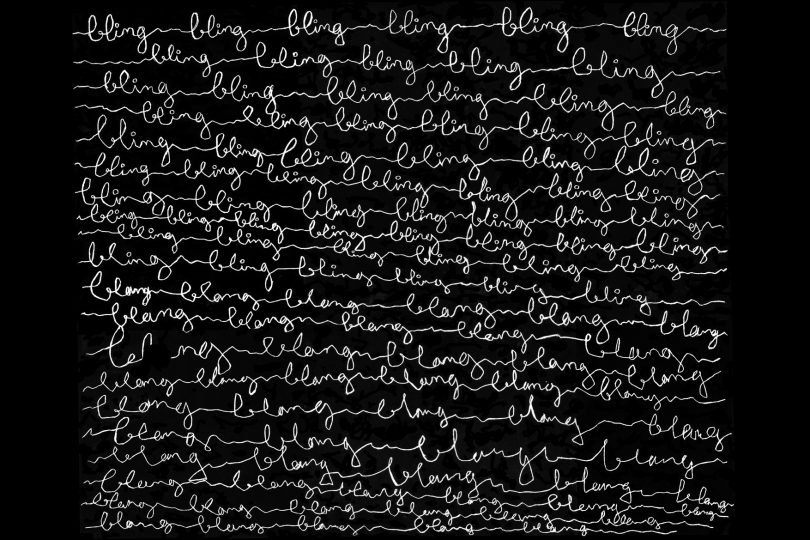 bling bling bling bling bling bling
bling bling bling bling bling
bling bling bling bling bling bling
bling bling bling bling bling bling
bling bling bling bling bling bling
bling bling bling bling bling bling
bling bling bling bling bling bling bling
bling bling bling bling bling bling bling
bling bling bling bling bling bling
bling bling bling bling bling bling
blang blang blang blang blang blang
blang blang blang blang blang
blang blang blang blang
blang blang blang blang blang blang
blang blang blang blang blang
blang blang blang blang
blang blang blang blang blang
blang blang blang blang blang blang
blang blang blang blang blang blang
blang blang blang blang blang